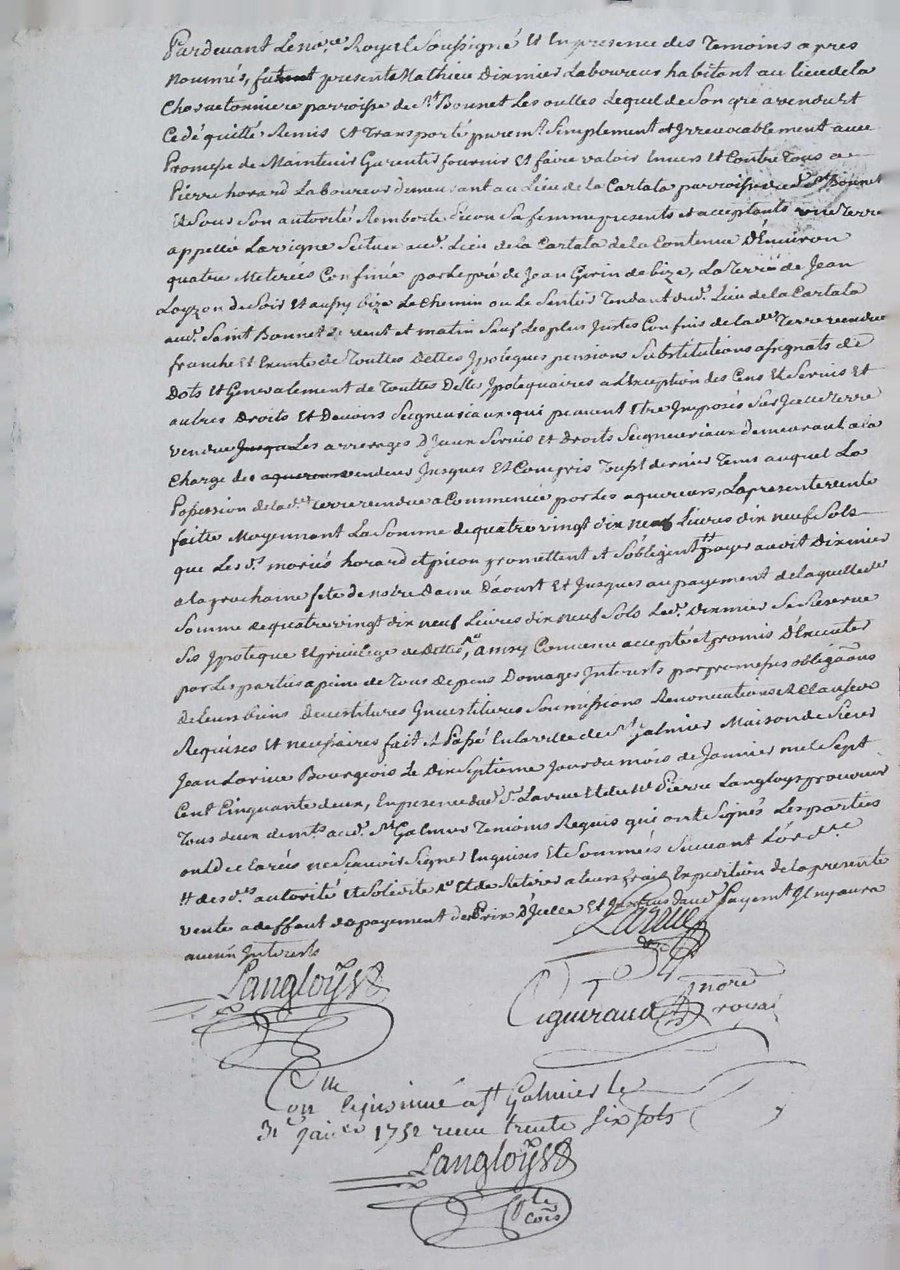 Pardevant Le no.re Royal Soussigné Et En presence des Temoins apres
nommés, fut present Mathieu Dirmier Laboureur habitant au lieu de la
parroisse de S.t Bonnet Les oulles Lequel de Son gré a vendu Et
Cedé quitté Remis Et Transporté purem.t Simplement et Irrevocablement avec
Promesse de Maintenir Garentir fournir Et faire valoir Envers Et Contre Tous a
Pierre horard Laboureur demeurant au Lieu de la Cartala parroisse du d. S.t Bonnet
Et Sous Son autorité a Sa femme presents et acceptants une Terre
appellée Lavigne Scituée aud. Lieu de la Cartala de la Contenue D'Environ
quatre Meterées Confinée par Le pré de Jean Girin de bize, La Terre de Jean
Loyzon de Soir Et aussy bize Le Chemin ou Le Sentier Tendant dud. Lieu de la Cartala
aud. Saint Bonnet de vent et matin Sauf Les plus Justes Confins de lad. Terre vendue
franche Et Exempte de Touttes Dettes Ipoteques pensions Substitutions assignats de
Dots Et Generalement de Touttes Dettes Ipotequaires a L'Exception des Cens Et Servis Et
autres Droits Et Devoirs Seigneuriaux qui peuvent Etre Imposés Sur Icelle Terre
vendue Les arrerages D'Iceux Servis et Droits Seigneuriaux demeurant a la
Charge des vendeur Jusques Et Compris dernier Tems auquel La
Possession de lad. Terre vendue a Commencée par Les aquereurs, La presente vente
faitte Moyennant La Somme de quatre vingt dix neuf Livres dix neuf Sols
que Les d.s mariés horard et promettent Et S'obligent payer aud. Dirmier
a la prochaine fete de nôtre Dame D'aoust Et Jusques au payement de laquelle
Somme de quatre vingt dix neuf Livres dix neuf Sols Led. Dirmier Se Reserve
Ses Ipoteque Et privilege de Dette, ainsy Convenu accepté et promis D'Executer
par Les parties a peine de Tous depens Domages Interests par promesses obligãons
de Leurs biens devestitures Investitures Soumissions Renonciations Et Clauses
Requises Et necessaires fait Et Passé En la ville de S.t Galmier Maison de Sieur
Jean Larüe Bourgeois Le Dix Septieme Jour du mois de Janvier mil Sept
Cent Cinquante deux, En presence dud. S.r Larue Et de M.e Pierre Langloys procureur
Tous deux dem.ts aud. S.t Galmier Temoins Requis qui ont Signés Les parties
ont declarées ne Sçavoir Signer Enquises Et Sommées Suivant L'ord.ce
autorité et Solidité Et de Retirer a leurs frais Expedition de la presente
vente a deffaut de payement du Prix D'Icelle Et payem.t Il n'y aura
aucun Interests
Larue
Langloys
Ciguiraud no.re royal
Con.lle et insinué a S.t Galmier le
31.e Janv.er 1752 receu trente six sols
Langloys